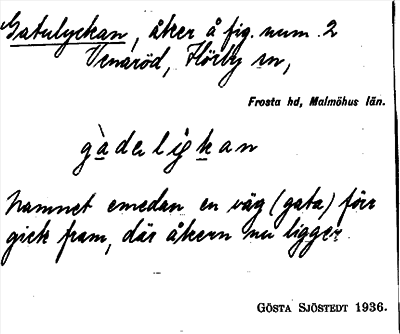 Gatulyckan, åker å fig. num. 2
Venaröd, Hörby sn,
Frosta hd, Malmöhus län.
gàdeligkan
Namnet emedan en väg (gata) förr
gick fram, där åkern nu ligger.
GÖSTA SJÖSTEDT 1936.